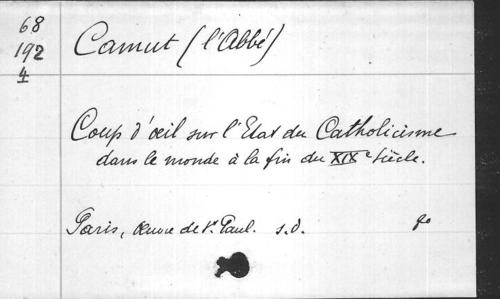 68
192
4
Camut (l'Abbé)
Coup d'œil sur l'Etat du Catholicisme
dans le monde à la fin du XIXe siècle.
Paris, Œuvre de St Paul. s.d.